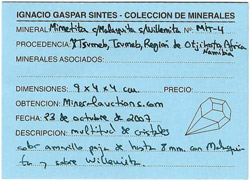 IGNACIO GASPAR SINTES - COLECCION DE MINERALES
MINERAL: Mimetita s/Malaquita s/Willemita Nº: Mtr-4
PROCEDENCIA: Tsumeb, Tsumeb, Región de Otjikoto, África
Namibia
MINERALES ASOCIADOS:
DIMENSIONES: 9 x 4 x 4 cm
OBTENCION: Mineralauctions.com
FECHA: 23 de octubre de 2007
DESCRIPCION: multitud de cristales
color amarillo paja de hasta 8 mm. con Malaqui-
ta y sobre willemita.